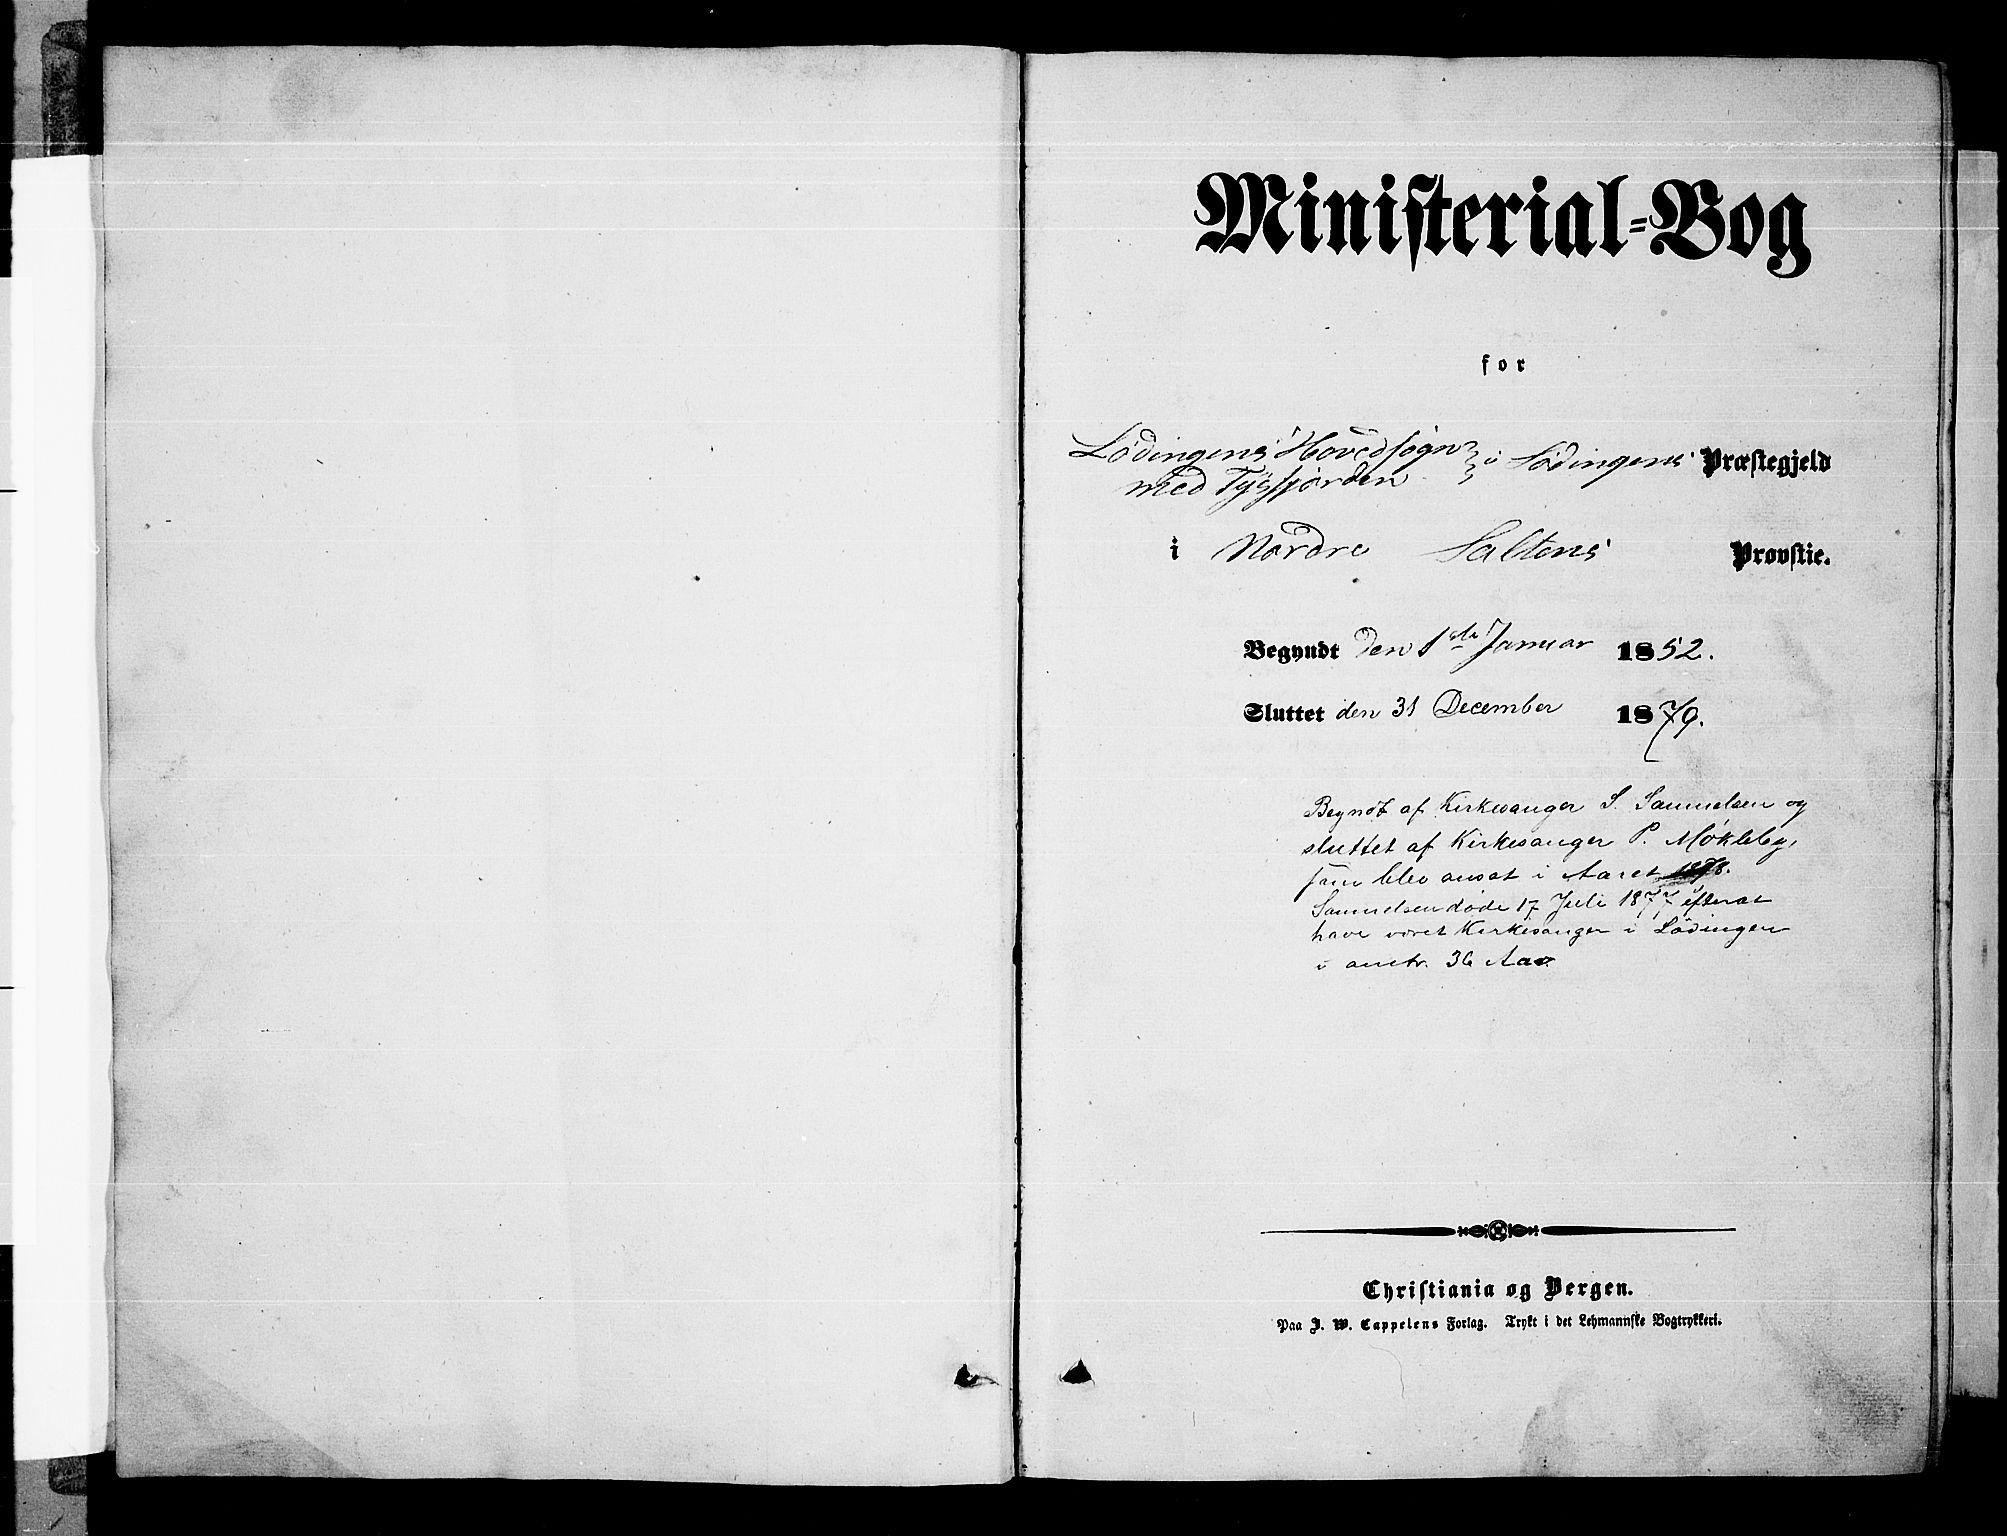 Ministerial-Bog
for
Lødingens Hovedsogn
med Tysfjorden
i Lødingens Præstegjeld
i Nordre Saltens Provstie.
Begyndt den 1ste Januar 1852.
Sluttet den 31 December 1879.
Begyndt af Kirkesanger S. Samuelsen og
sluttet af Kirkesanger P. Møkleby,
som blev ansat i Aaret 1878.
Samuelsen døde 17 Juli 1877 efterat
have været Kirkesanger i Lødingen
i omtr. 36 Aar.
Christiania og Bergen.
Paa J. W. Cappelens Forlag. Trykt i det Lehmannske Bogtrykkeri.